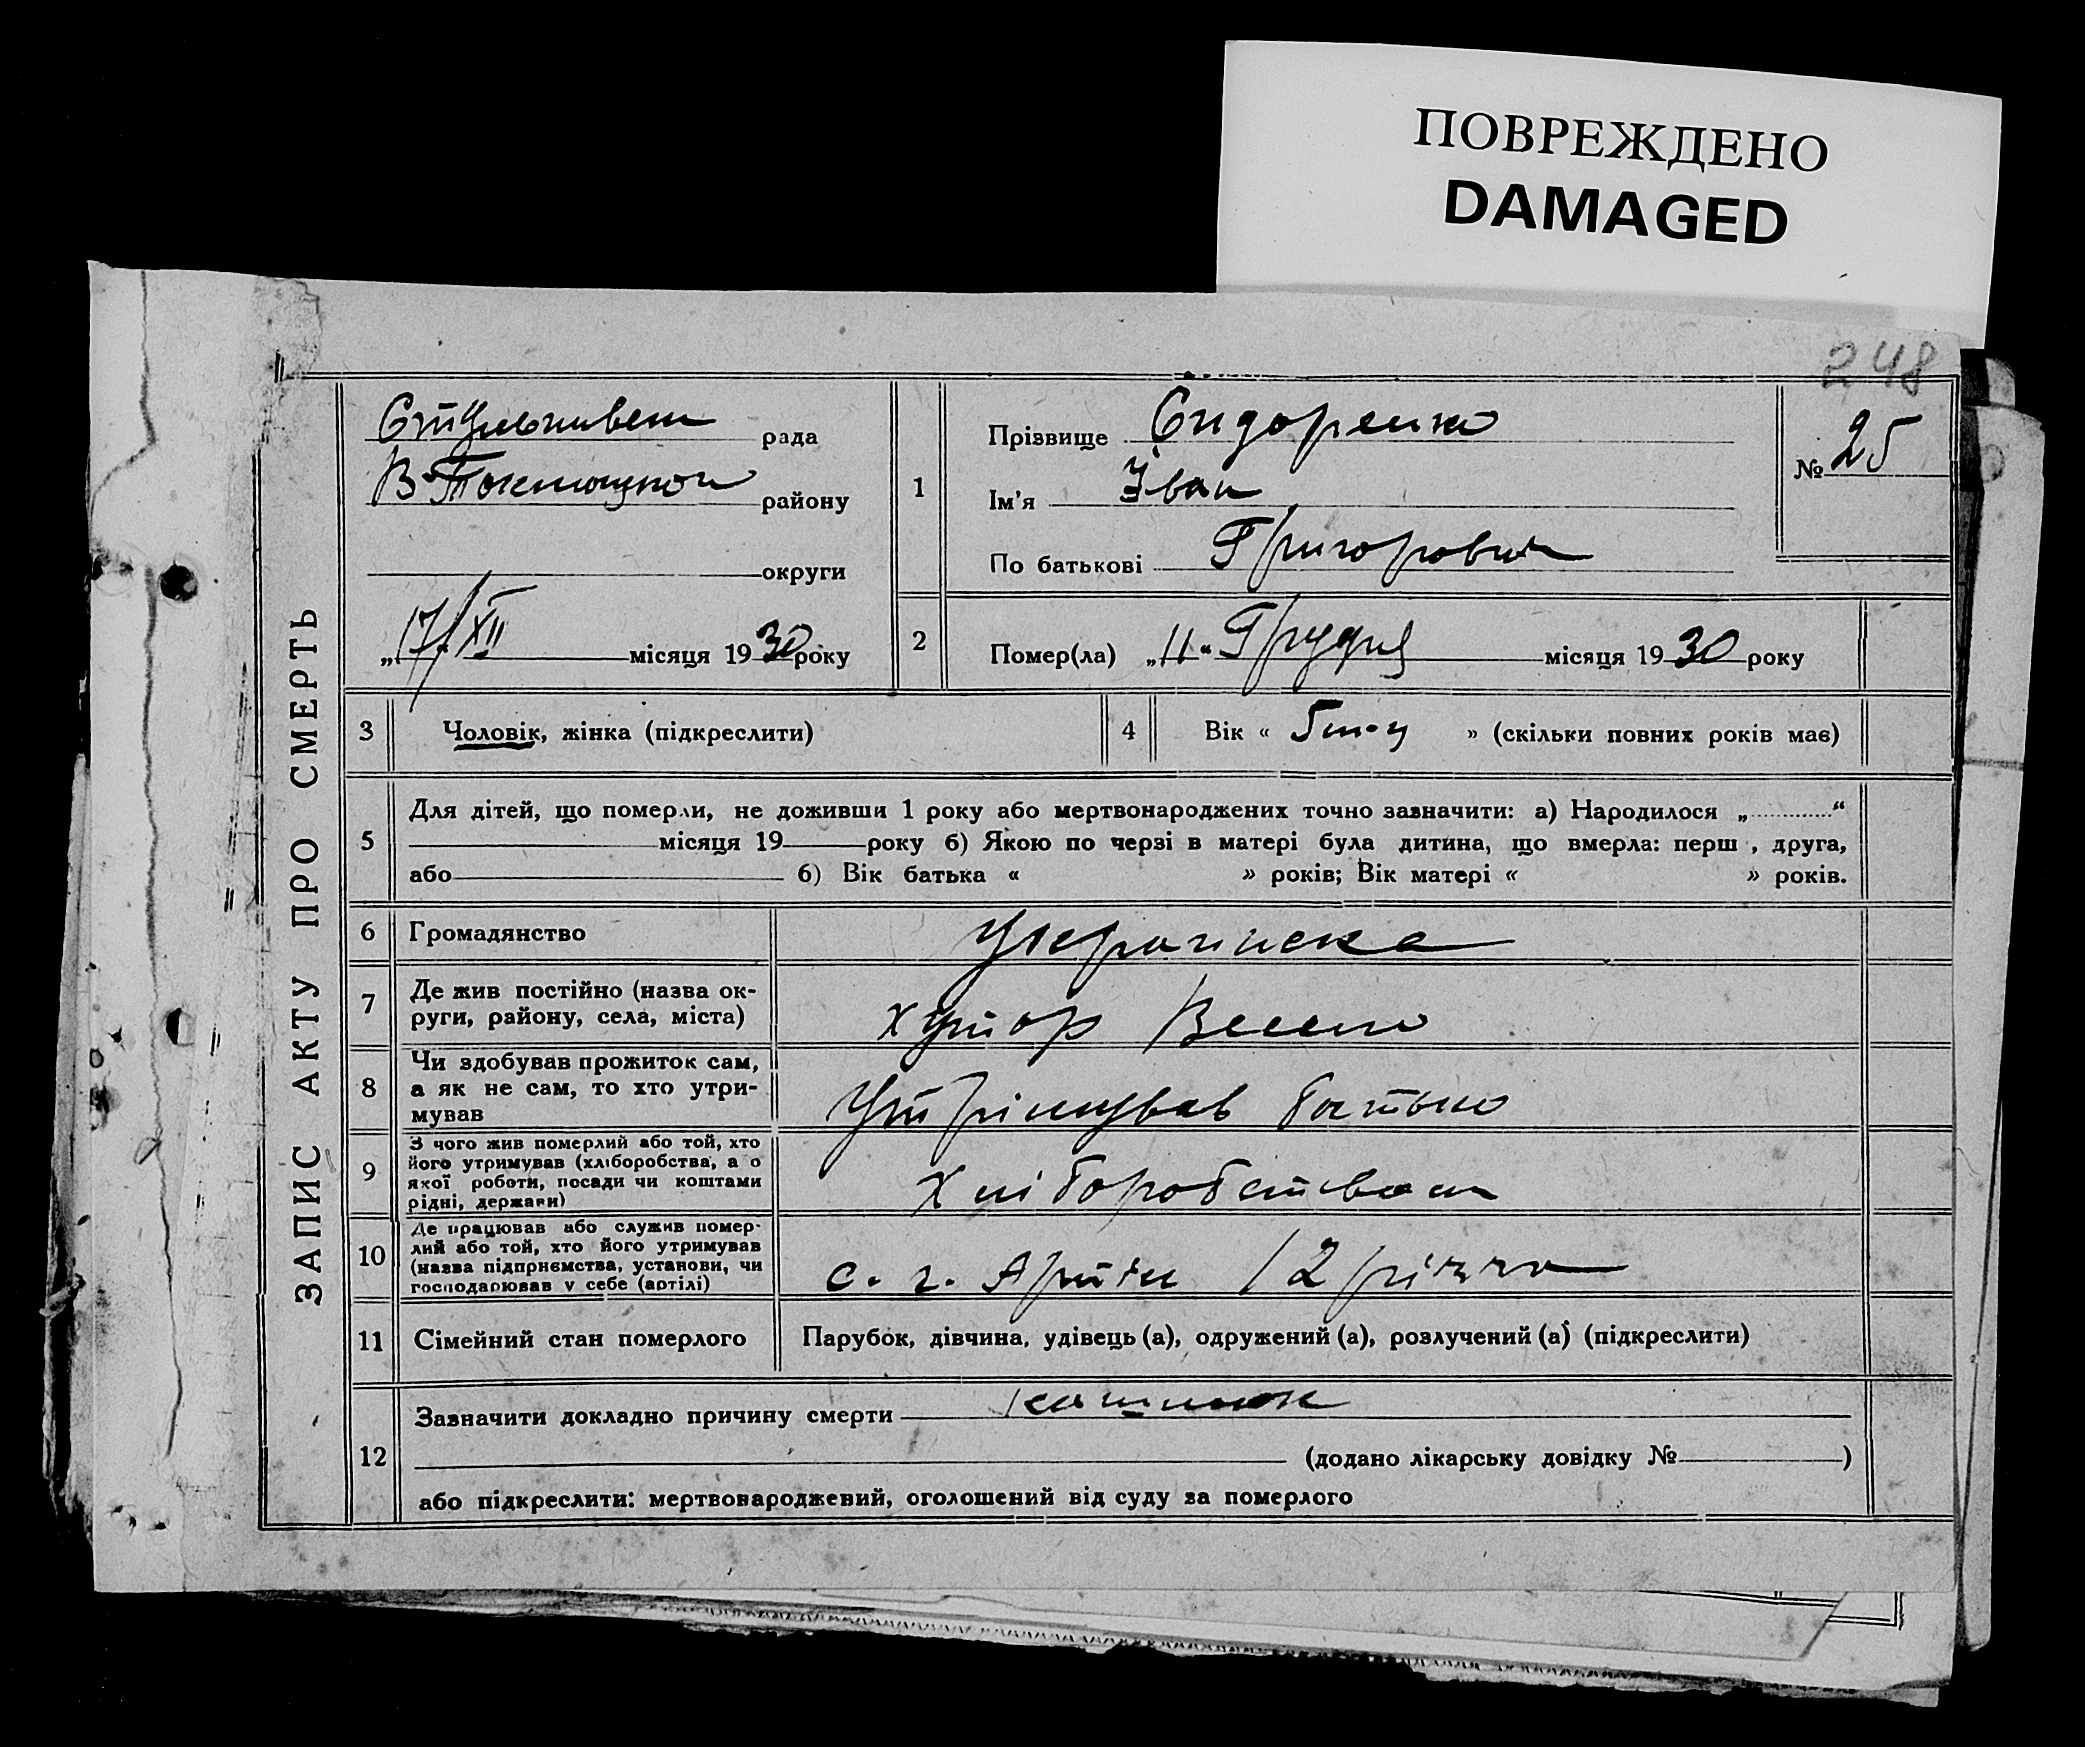 ПОВРЕЖДЕНО
DAMAGED
248
ЗАПИС АКТУ ПРО СМЕРТЬ
рада
В-Токмацкой району
округи
„17/XII місяця 1930 року
1
Прізвище Сидоренко
Ім'я Іван
По батькові Григорович
№ 25
2
Помер(ла) „11“ Грудня місяця 1930 року
3
Чоловік, жінка (підкреслити)
4
Вік « 5 » (скільки повних років має)
5
Для дітей, що померли, не доживши 1 року або мертвонароджених точно зазначити: а) Народилося „ “
місяця 19 року б) Якою по черзі в матері була дитина, що вмерла: перш , друга,
або б) Вік батька « » років; Вік матері « » років.
6
Громадянство
Украинска
7
Де жив постійно (назва ок-
руги, району, села, міста)
хутор Весело
8
Чи здобував прожиток сам,
а як не сам, то хто утри-
мував
Утрімував батько
9
З чого жив померлий або той, хто
його утримував (хліборобства, а о
якої роботи, посади чи коштами
рідні, держави)
Хліборобством
10
Де працював або служив помер-
лий або той, хто його утримував
(назва підприємства, установи, чи
господарював у себе (артілі)
с. г. Артіл
11
Сімейний стан померлого
Парубок, дівчина, удівець (а), одружений (а), розлучений (а) (підкреслити)
12
Зазначити докладно причину смерти кашлюк
(додано лікарську довідку № )
або підкреслити: мертвонароджений, оголошений від суду за померлого